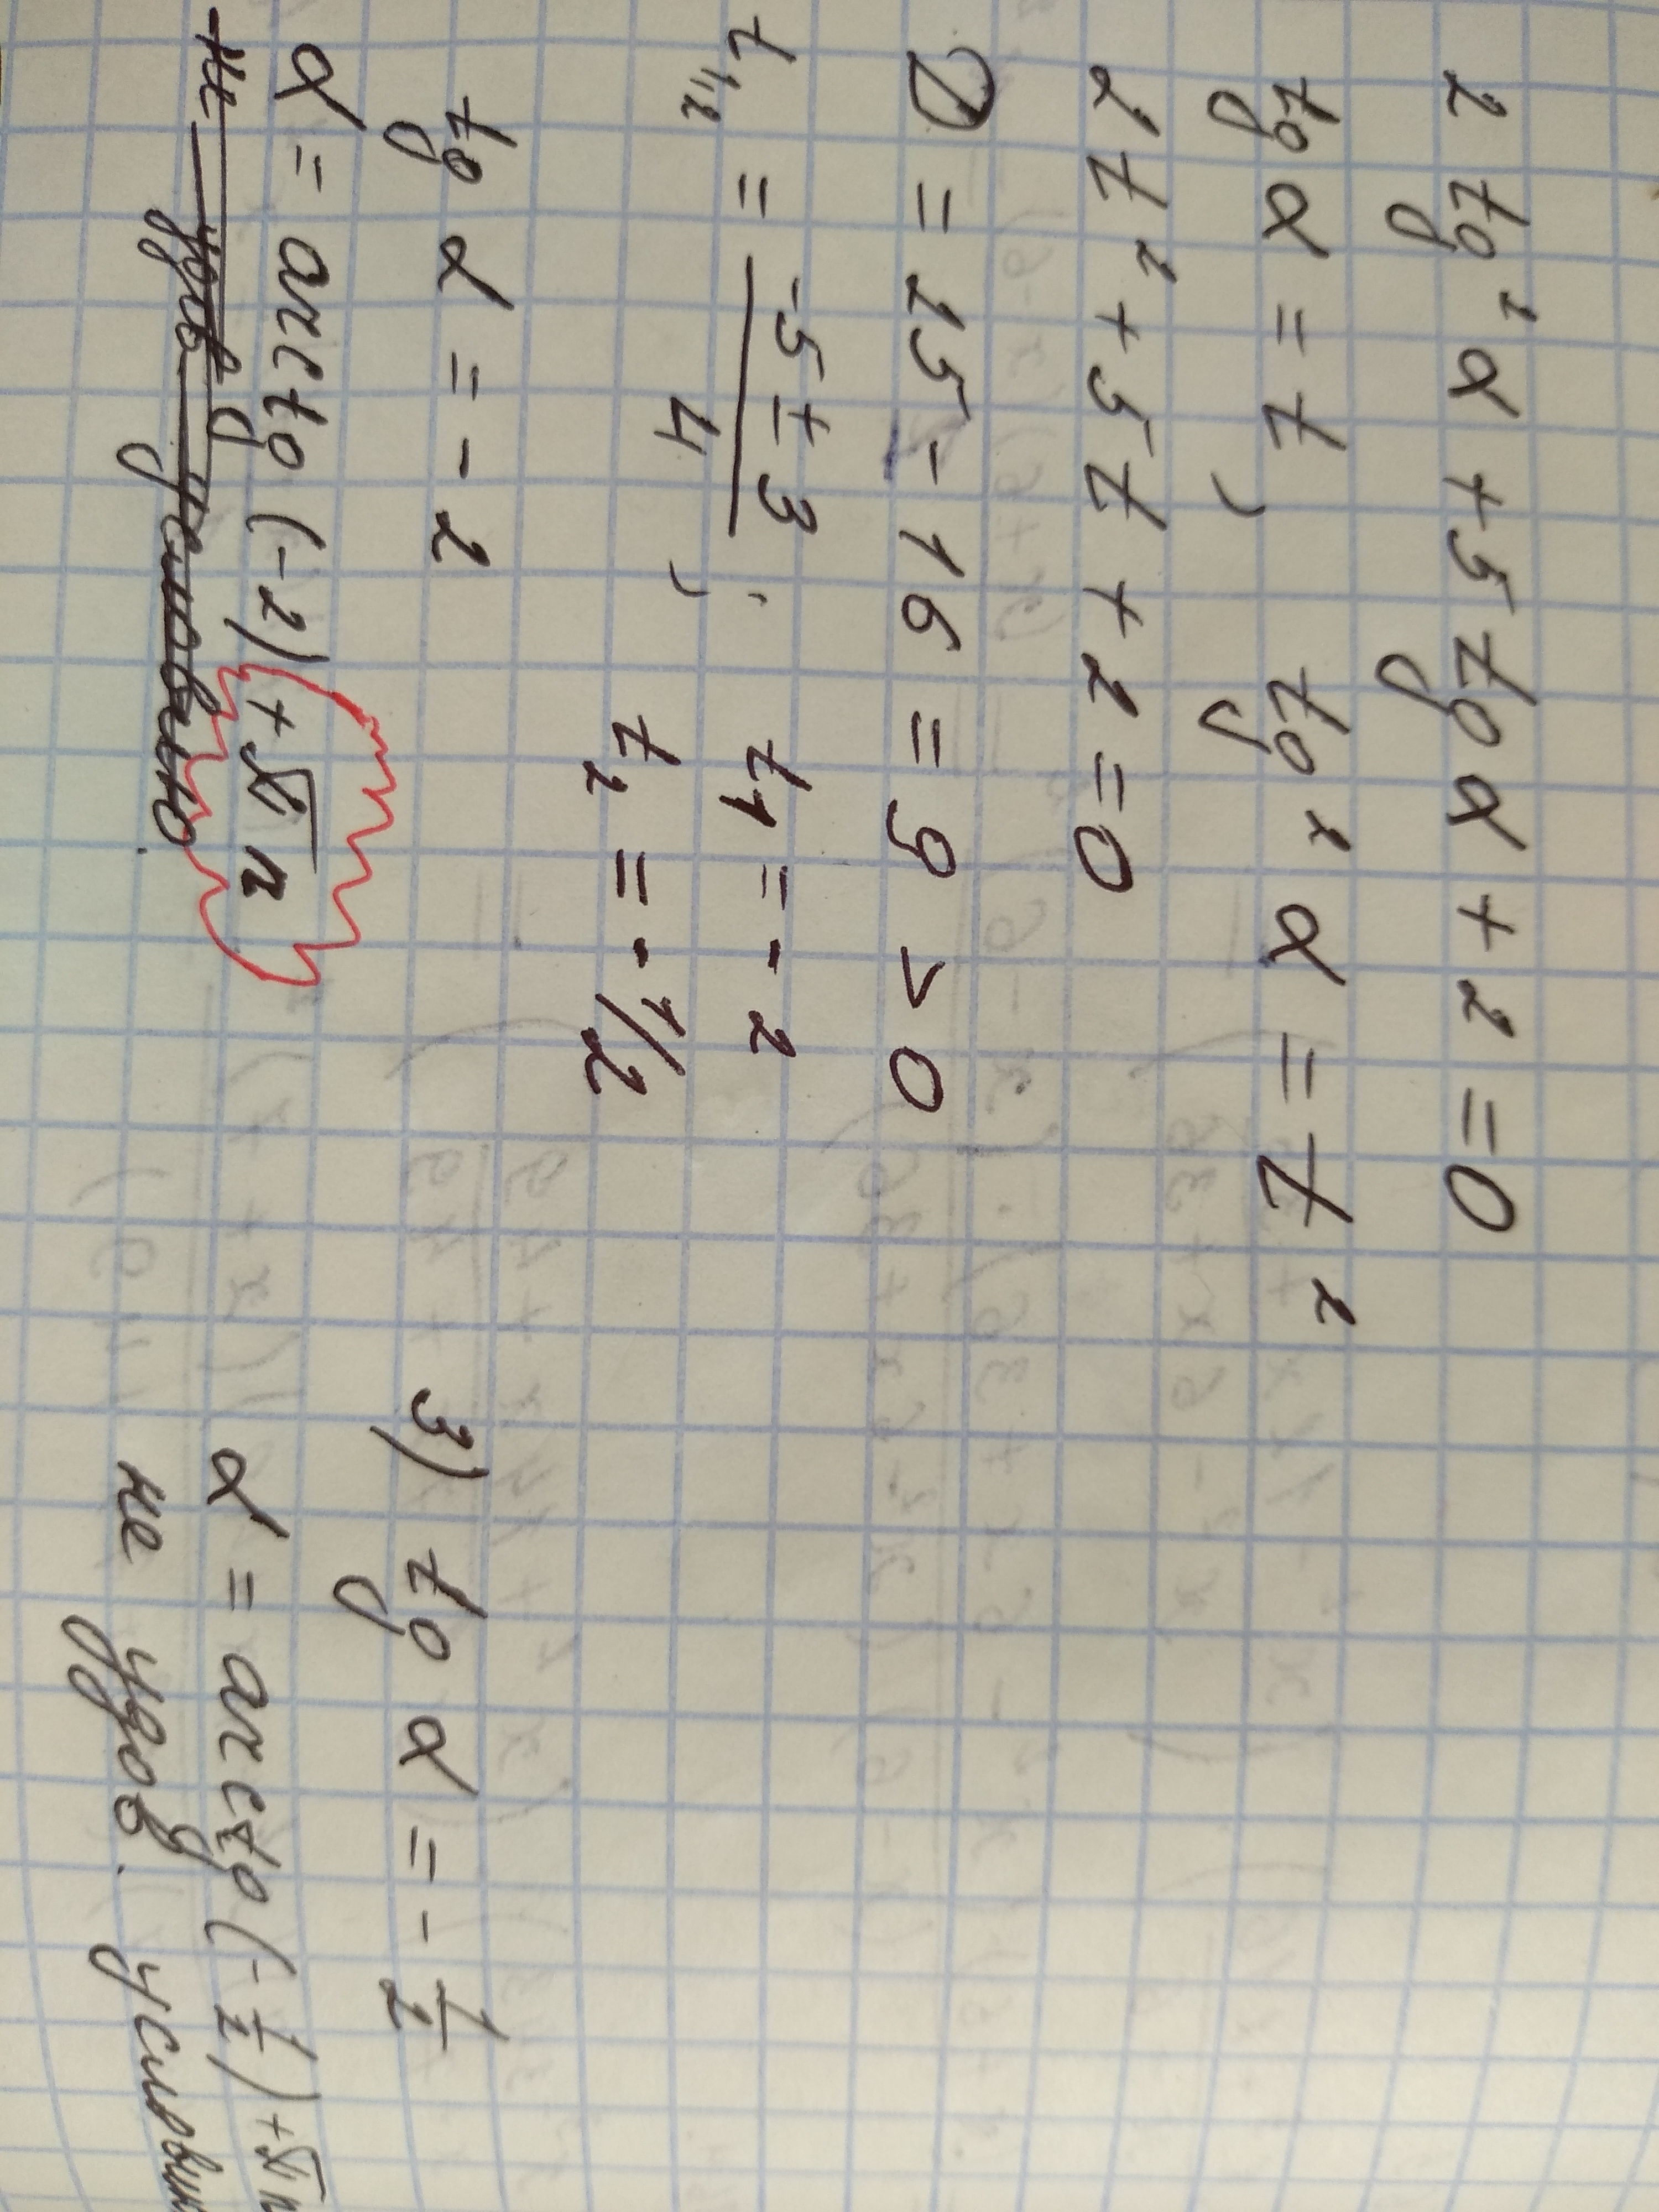 2 tg² α + 5 tg α + 2 = 0
tg α = t, tg² α = t²
2t² + 5t + 2 = 0
D = 25 - 16 = 9 > 0
t₁,₂ = (-5 ± 3)/4 ; t₁ = -2
t₂ = -1/2
tg α = -2
α = arctg (-2) + πn
не удов. условию.
3) tg α = -1/2
α = arctg (-1/2) + πn
не удов. услови